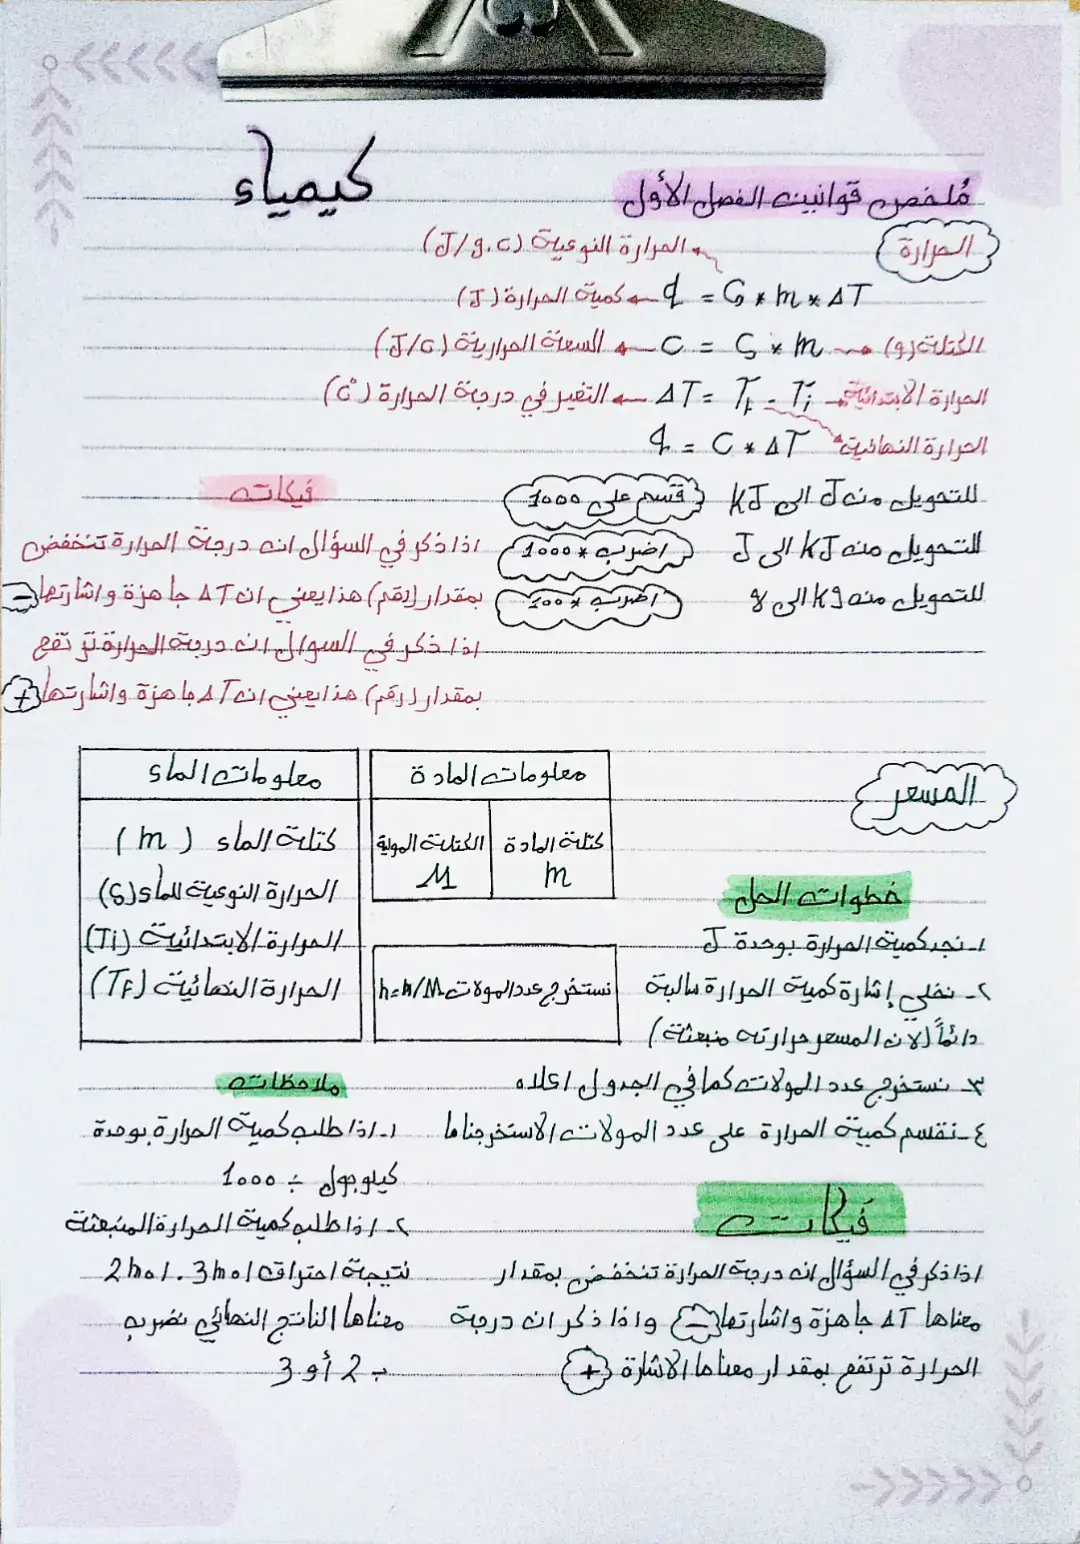 كيمياء
مُلخص قوانين الفصل الأول
الحرارة
الحرارة النوعية (J/g.c)
q = ς * m * ΔT
كمية الحرارة (J)
الكتلة (g)
C = ς * m
السعة الحرارية (J/c)
الحرارة الابتدائية
ΔT = Tf - Ti
التغير في درجة الحرارة (c°)
الحرارة النهائية
q = C * ΔT
للتحويل من J الى kJ
قسم على 1000
للتحويل من kJ الى J
اضرب * 1000
للتحويل من kg الى g
اضرب * 1000
فيكات
اذا ذكر في السؤال ان درجة الحرارة تنخفض
بمقدار (رقم) هذا يعني ان ΔT جاهزة واشارتها -
اذا ذكر في السوال ان درجة الحرارة ترتفع
بمقدار (رقم) هذا يعني ان ΔT جاهزة واشارتها +
المسعر
معلومات المادة
كتلة المادة
m
الكتلة المولية
M
نستخرج عدد المولات n=m/M
معلومات الماء
كتلة الماء (m)
الحرارة النوعية للماء (ς)
الحرارة الابتدائية (Ti)
الحرارة النهائية (TF)
خطوات الحل
١- نجد كمية الحرارة بوحدة J
٢- نخلي إشارة كمية الحرارة سالبة
دائماً (لان المسعر حرارته منبعثة)
٣- نستخرج عدد المولات كما في الجدول اعلاه
٤- نقسم كمية الحرارة على عدد المولات الاستخرجناها
فيكات
اذا ذكر في السؤال ان درجة الحرارة تنخفض بمقدار
معناها ΔT جاهزة واشارتها - واذا ذكر ان درجة
الحرارة ترتفع بمقدار معناها الاشارة +
ملاحظات
١- اذا طلب كمية الحرارة بوحدة
كيلوجول ÷ 1000
٢- اذا طلب كمية الحرارة المنبعثة
نتيجة احتراق 2mol . 3mol
معناها الناتج النهائي نضرب
بـ 2 أو 3